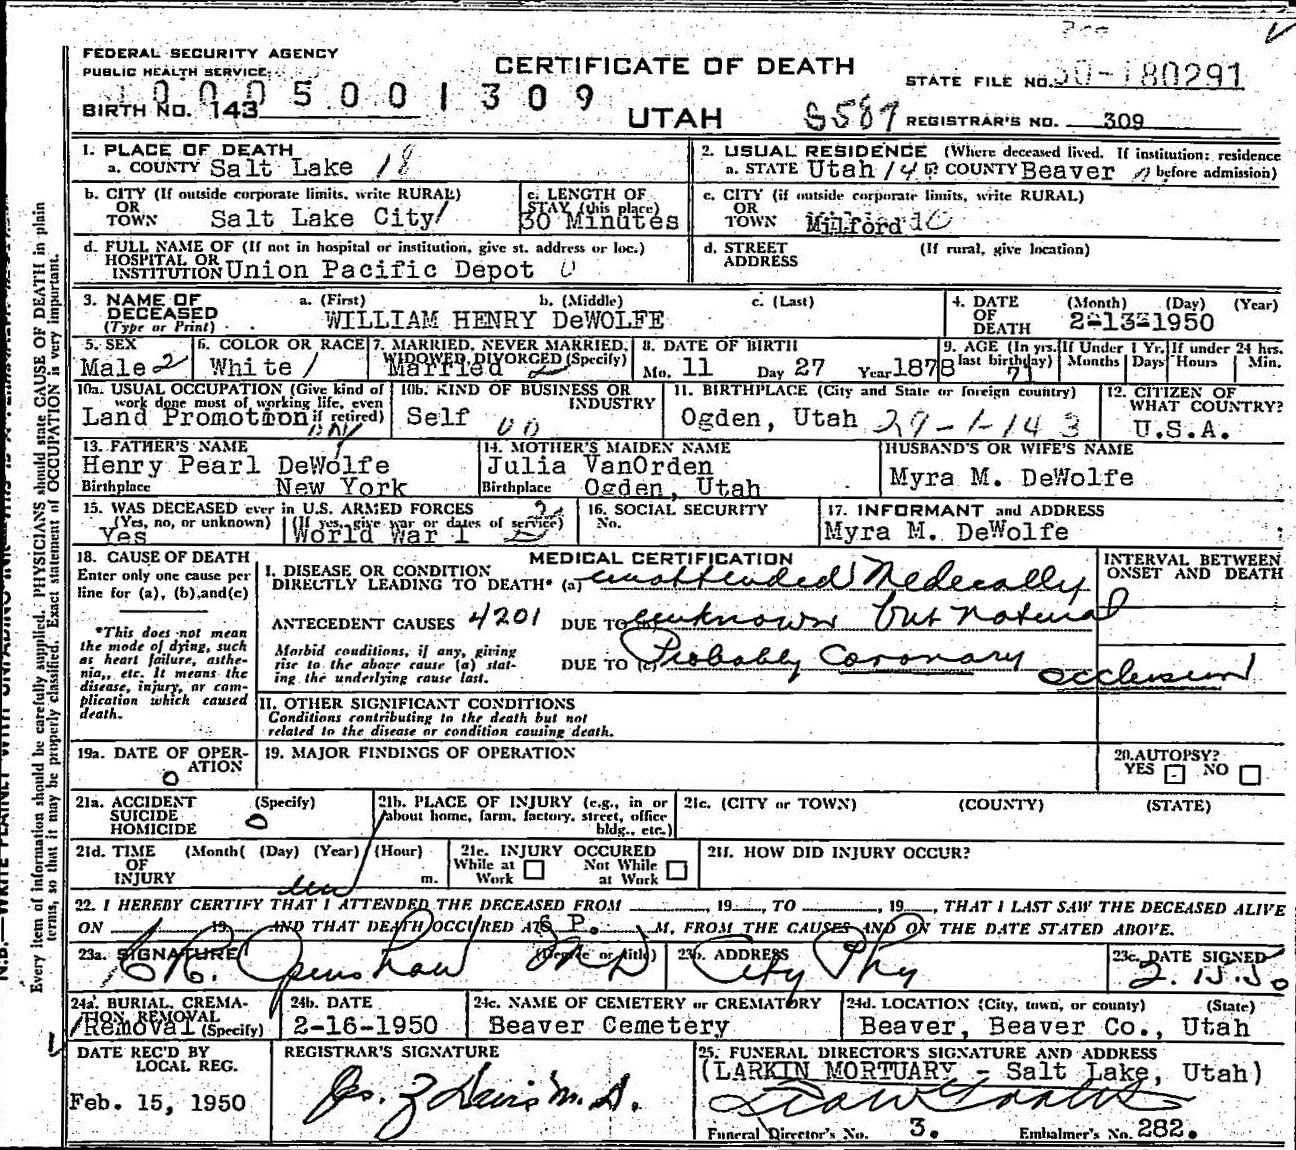 FEDERAL SECURITY AGENCY
PUBLIC HEALTH SERVICE
CERTIFICATE OF DEATH
STATE FILE NO. 50-180291
0005001309
BIRTH NO. 143
UTAH
REGISTRAR'S NO. 309
1. PLACE OF DEATH
a. COUNTY Salt Lake 18
2. USUAL RESIDENCE (Where deceased lived. If institution: residence
a. STATE Utah b. COUNTY Beaver before admission)
b. CITY (If outside corporate limits, write RURAL)
OR
TOWN Salt Lake City
c. LENGTH OF
STAY (this place)
30 Minutes
c. CITY (if outside corporate limits, write RURAL)
OR
TOWN Milford
d. FULL NAME OF (If not in hospital or institution, give st. address or loc.)
HOSPITAL OR
INSTITUTION Union Pacific Depot
d. STREET
ADDRESS
(If rural, give location)
3. NAME OF
DECEASED
(Type or Print)
a. (First) b. (Middle) c. (Last)
WILLIAM HENRY DeWOLFE
4. DATE
OF
DEATH
(Month) (Day) (Year)
2-13-1950
5. SEX
Male 2
6. COLOR OR RACE
White
7. MARRIED, NEVER MARRIED,
WIDOWED, DIVORCED (Specify)
Married
8. DATE OF BIRTH
Mo. 11 Day 27 Year 1878
9. AGE (In yrs.
last birthday)
71
If Under 1 Yr.
Months Days
If under 24 hrs.
Hours Min.
10a. USUAL OCCUPATION (Give kind of
work done most of working life, even
if retired)
Land Promotion
10b. KIND OF BUSINESS OR
INDUSTRY
Self
11. BIRTHPLACE (City and State or foreign country)
Ogden, Utah 29-1-143
12. CITIZEN OF
WHAT COUNTRY?
U.S.A.
13. FATHER'S NAME
Henry Pearl DeWolfe
Birthplace New York
14. MOTHER'S MAIDEN NAME
Julia VanOrden
Birthplace Ogden, Utah
HUSBAND'S OR WIFE'S NAME
Myra M. DeWolfe
15. WAS DECEASED ever in U.S. ARMED FORCES
(Yes, no, or unknown) (If yes, give war or dates of service)
Yes World War 1
16. SOCIAL SECURITY
No.
17. INFORMANT and ADDRESS
Myra M. DeWolfe
18. CAUSE OF DEATH
Enter only one cause per
line for (a), (b), and (c)
*This does not mean
the mode of dying, such
as heart failure, asthe-
nia, etc. It means the
disease, injury, or com-
plication which caused
death.
MEDICAL CERTIFICATION
I. DISEASE OR CONDITION
DIRECTLY LEADING TO DEATH* (a) unattended Medecally
ANTECEDENT CAUSES 4201 DUE TO unknown but natural
Morbid conditions, if any, giving
rise to the above cause (a) stat-
ing the underlying cause last.
DUE TO (c) Probably Coronary
occlusion
INTERVAL BETWEEN
ONSET AND DEATH
II. OTHER SIGNIFICANT CONDITIONS
Conditions contributing to the death but not
related to the disease or condition causing death.
19a. DATE OF OPER-
ATION
0
19. MAJOR FINDINGS OF OPERATION
20. AUTOPSY?
YES NO
21a. ACCIDENT
SUICIDE
HOMICIDE
(Specify)
0
21b. PLACE OF INJURY (e.g., in or
about home, farm, factory, street, office
bldg., etc.)
21c. (CITY or TOWN) (COUNTY) (STATE)
21d. TIME
OF
INJURY
(Month( (Day) (Year) (Hour)
m.
21e. INJURY OCCURED
While at Work
Not While at Work
21f. HOW DID INJURY OCCUR?
22. I HEREBY CERTIFY THAT I ATTENDED THE DECEASED FROM , 19 , TO , 19 , THAT I LAST SAW THE DECEASED ALIVE
ON 19 AND THAT DEATH OCCURED AT 6 P. M, FROM THE CAUSES AND ON THE DATE STATED ABOVE.
23a. SIGNATURE (Degree or title)
C R. Openshaw MD
23b. ADDRESS
City Phy
23c. DATE SIGNED
2.15.50
24a. BURIAL, CREMA-
TION, REMOVAL
(Specify)
Removal
24b. DATE
2-16-1950
24c. NAME OF CEMETERY or CREMATORY
Beaver Cemetery
24d. LOCATION (City, town, or county) (State)
Beaver, Beaver Co., Utah
DATE REC'D BY
LOCAL REG.
Feb. 15, 1950
REGISTRAR'S SIGNATURE
Jos. Z Davis M.D.
25. FUNERAL DIRECTOR'S SIGNATURE AND ADDRESS
(LARKIN MORTUARY - Salt Lake, Utah)
Funeral Director's No. 3. Embalmer's No. 282.
Every item of information should be carefully supplied. PHYSICIANS should state CAUSE OF DEATH in plain
terms, so that it may be properly classified. Exact statement of OCCUPATION is very important.